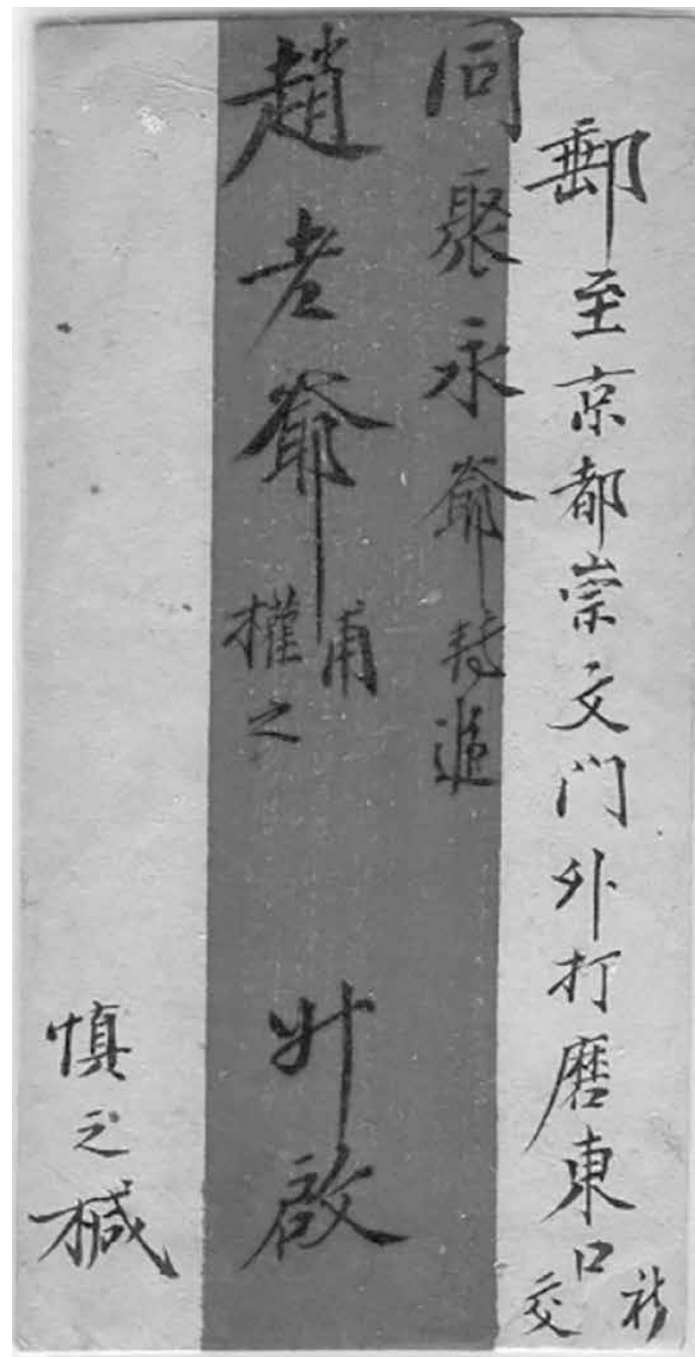 郵至京都崇文門外打磨東口祈交
同聚永爺轉遞
趙老爺甫權之升啟
慎之椷